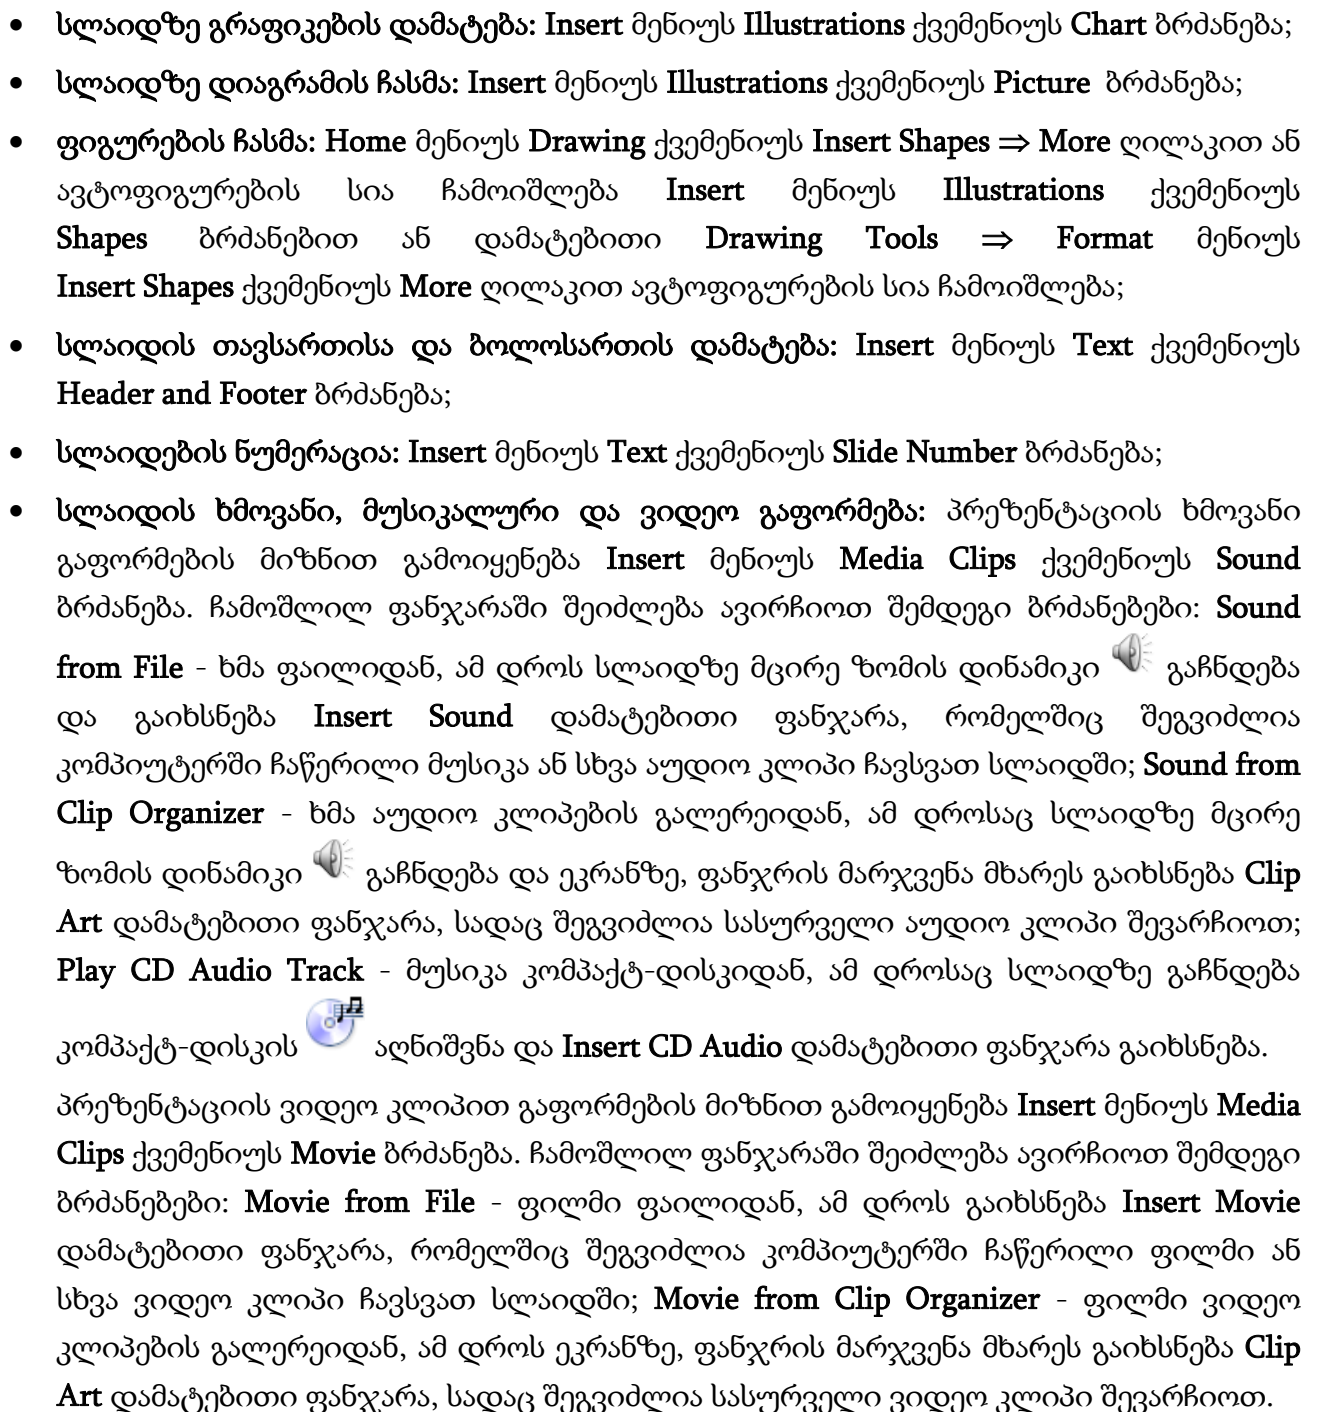 • სლაიდზე გრაფიკების დამატება: Insert მენიუს Illustrations ქვემენიუს Chart ბრძანება;
• სლაიდზე დიაგრამის ჩასმა: Insert მენიუს Illustrations ქვემენიუს Picture ბრძანება;
• ფიგურების ჩასმა: Home მენიუს Drawing ქვემენიუს Insert Shapes ⇒ More ღილაკით ან
ავტოფიგურების სია ჩამოიშლება Insert მენიუს Illustrations ქვემენიუს
Shapes ბრძანებით ან დამატებითი Drawing Tools ⇒ Format მენიუს
Insert Shapes ქვემენიუს More ღილაკით ავტოფიგურების სია ჩამოიშლება;
• სლაიდის თავსართისა და ბოლოსართის დამატება: Insert მენიუს Text ქვემენიუს
Header and Footer ბრძანება;
• სლაიდების ნუმერაცია: Insert მენიუს Text ქვემენიუს Slide Number ბრძანება;
• სლაიდის ხმოვანი, მუსიკალური და ვიდეო გაფორმება: პრეზენტაციის ხმოვანი
გაფორმების მიზნით გამოიყენება Insert მენიუს Media Clips ქვემენიუს Sound
ბრძანება. ჩამოშლილ ფანჯარაში შეიძლება ავირჩიოთ შემდეგი ბრძანებები: Sound
from File - ხმა ფაილიდან, ამ დროს სლაიდზე მცირე ზომის დინამიკი გაჩნდება
და გაიხსნება Insert Sound დამატებითი ფანჯარა, რომელშიც შეგვიძლია
კომპიუტერში ჩაწერილი მუსიკა ან სხვა აუდიო კლიპი ჩავსვათ სლაიდში; Sound from
Clip Organizer - ხმა აუდიო კლიპების გალერეიდან, ამ დროსაც სლაიდზე მცირე
ზომის დინამიკი გაჩნდება და ეკრანზე, ფანჯრის მარჯვენა მხარეს გაიხსნება Clip
Art დამატებითი ფანჯარა, სადაც შეგვიძლია სასურველი აუდიო კლიპი შევარჩიოთ;
Play CD Audio Track - მუსიკა კომპაქტ-დისკიდან, ამ დროსაც სლაიდზე გაჩნდება
კომპაქტ-დისკის აღნიშვნა და Insert CD Audio დამატებითი ფანჯარა გაიხსნება.
პრეზენტაციის ვიდეო კლიპით გაფორმების მიზნით გამოიყენება Insert მენიუს Media
Clips ქვემენიუს Movie ბრძანება. ჩამოშლილ ფანჯარაში შეიძლება ავირჩიოთ შემდეგი
ბრძანებები: Movie from File - ფილმი ფაილიდან, ამ დროს გაიხსნება Insert Movie
დამატებითი ფანჯარა, რომელშიც შეგვიძლია კომპიუტერში ჩაწერილი ფილმი ან
სხვა ვიდეო კლიპი ჩავსვათ სლაიდში; Movie from Clip Organizer - ფილმი ვიდეო
კლიპების გალერეიდან, ამ დროს ეკრანზე, ფანჯრის მარჯვენა მხარეს გაიხსნება Clip
Art დამატებითი ფანჯარა, სადაც შეგვიძლია სასურველი ვიდეო კლიპი შევარჩიოთ.